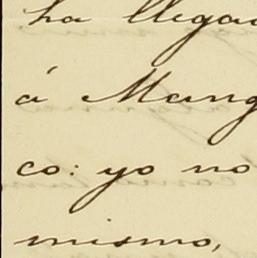 ha llegad
á Mang
co: yo no
mismo,